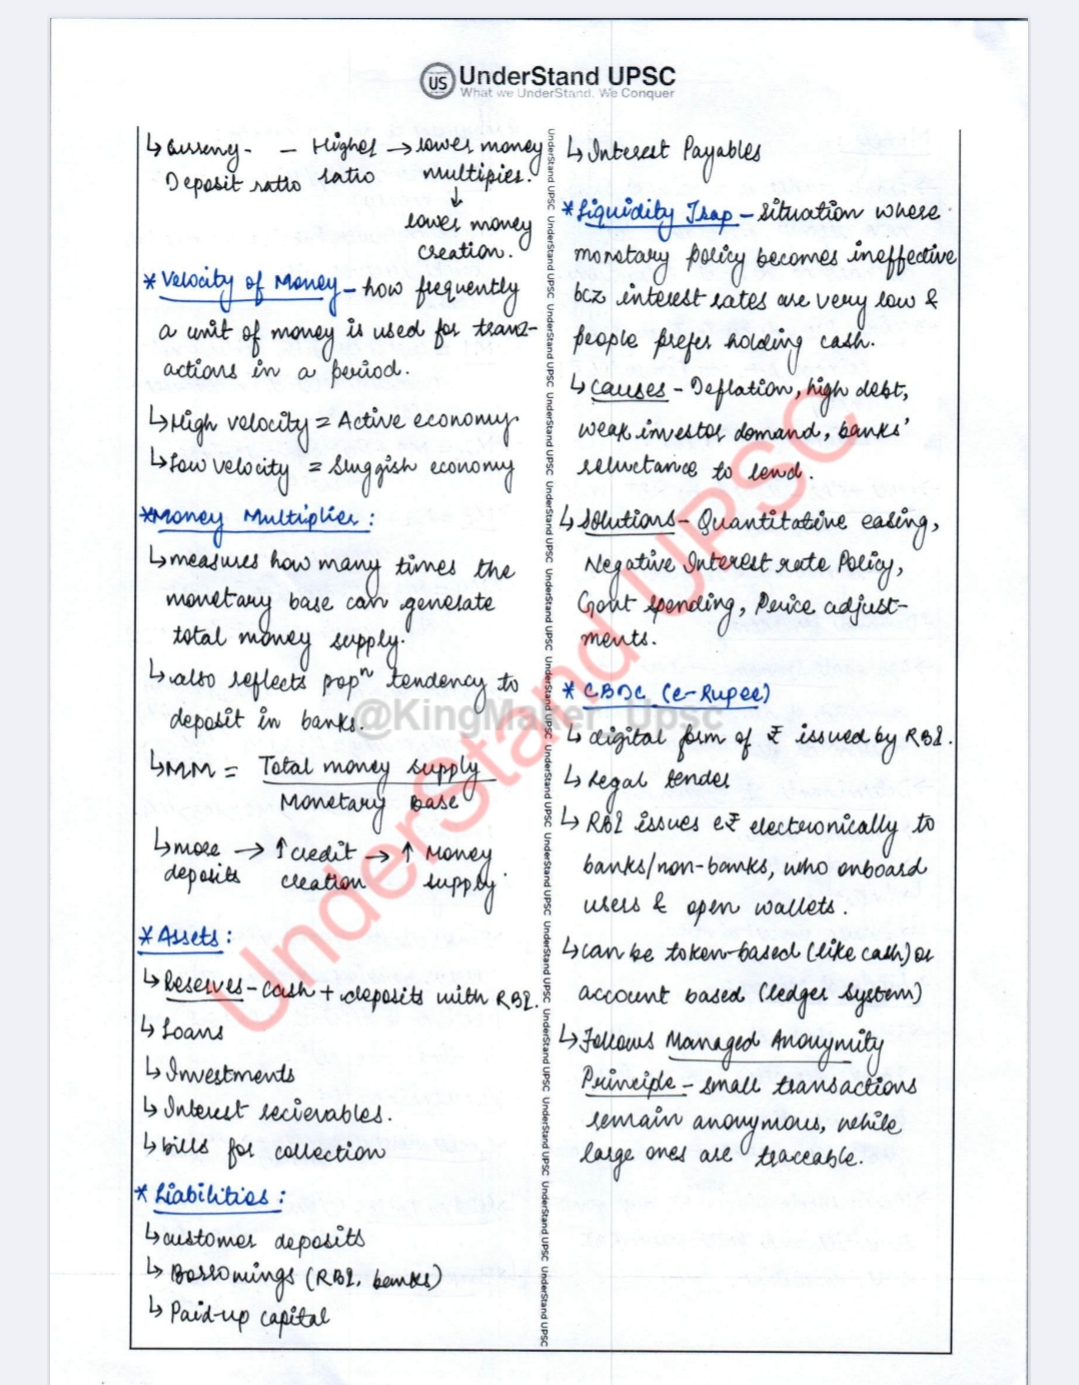 US UnderStand UPSC
What we UnderStand, We Conquer
↳ Currency- – Higher → lower money
Deposit ratio ratio multiplier.
↓
lower money
creation.
* Velocity of Money – how frequently
a unit of money is used for trans-
actions in a period.
↳ High velocity = Active economy
↳ Low velocity = Sluggish economy
* Money Multiplier :
↳ measures how many times the
monetary base can generate
total money supply.
↳ also reflects popⁿ tendency to
deposit in banks.
↳ MM = Total money supply
Monetary Base
↳ more → ↑ credit → ↑ Money
deposits creation supply.
* Assets :
↳ Reserves – Cash + deposits with RBI.
↳ Loans
↳ Investments
↳ Interest recievables.
↳ bills for collection
* Liabilities :
↳ customer deposits
↳ Borrowings (RBI, banks)
↳ Paid-up capital
↳ Interest Payables
* Liquidity Trap – Situation where
monetary policy becomes ineffective
bcz interest rates are very low &
people prefer holding cash.
↳ Causes – Deflation, high debt,
weak investor demand, banks'
reluctance to lend.
↳ Solutions – Quantitative easing,
Negative Interest rate Policy,
Govt spending, Price adjust-
ments.
* CBDC (e-Rupee)
↳ digital form of ₹ issued by RBI.
↳ Legal tender
↳ RBI issues e₹ electronically to
banks/non-banks, who onboard
users & open wallets.
↳ can be token-based (like cash) or
account based (ledger system)
↳ Follows Managed Anonymity
Principle – small transactions
remain anonymous, while
large ones are traceable.
UnderStand UPSC
@KingMaker_Upsc
UnderStand UPSC UnderStand UPSC UnderStand UPSC UnderStand UPSC UnderStand UPSC UnderStand UPSC UnderStand UPSC UnderStand UPSC UnderStand UPSC UnderStand UPSC UnderStand UPSC UnderStand UPSC UnderStand UPSC UnderStand UPSC